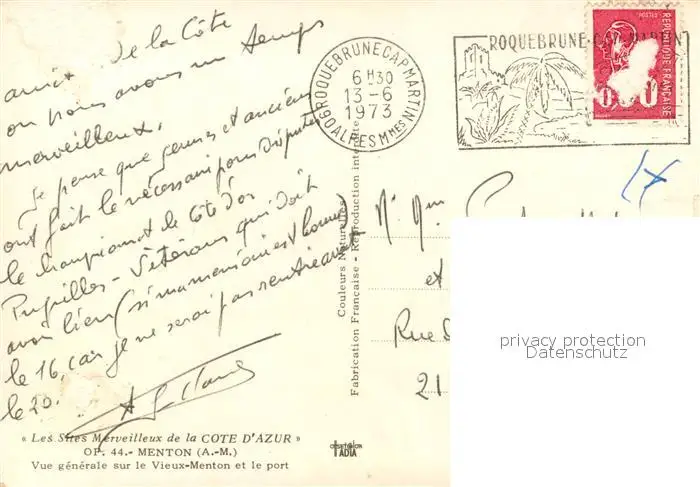 amitié de la Côte
ou nous avons un temps
merveilleux.
Je pense que jeunes et anciens
ont fait le nécessaire pour disputer
le championnat de Côte d'or
Pupilles - Vétérans qui doit
avoir lieu (si ma mémoire est bonne)
le 16, car je ne serai pas rentré avant
le 20.
ROQUEBRUNE CAP MARTIN
6 H30
13-6
1973
06 ALPES Mmes
ROQUEBRUNE-CAP-MARTIN
POSTES
REPUBLIQUE FRANÇAISE
Couleurs Naturelles
Fabrication Française - Reproduction interdite
et
Rue
21
privacy protection
Datenschutz
« Les Sites Merveilleux de la COTE D'AZUR »
OP. 44.- MENTON (A.-M.)
Vue générale sur le Vieux-Menton et le port